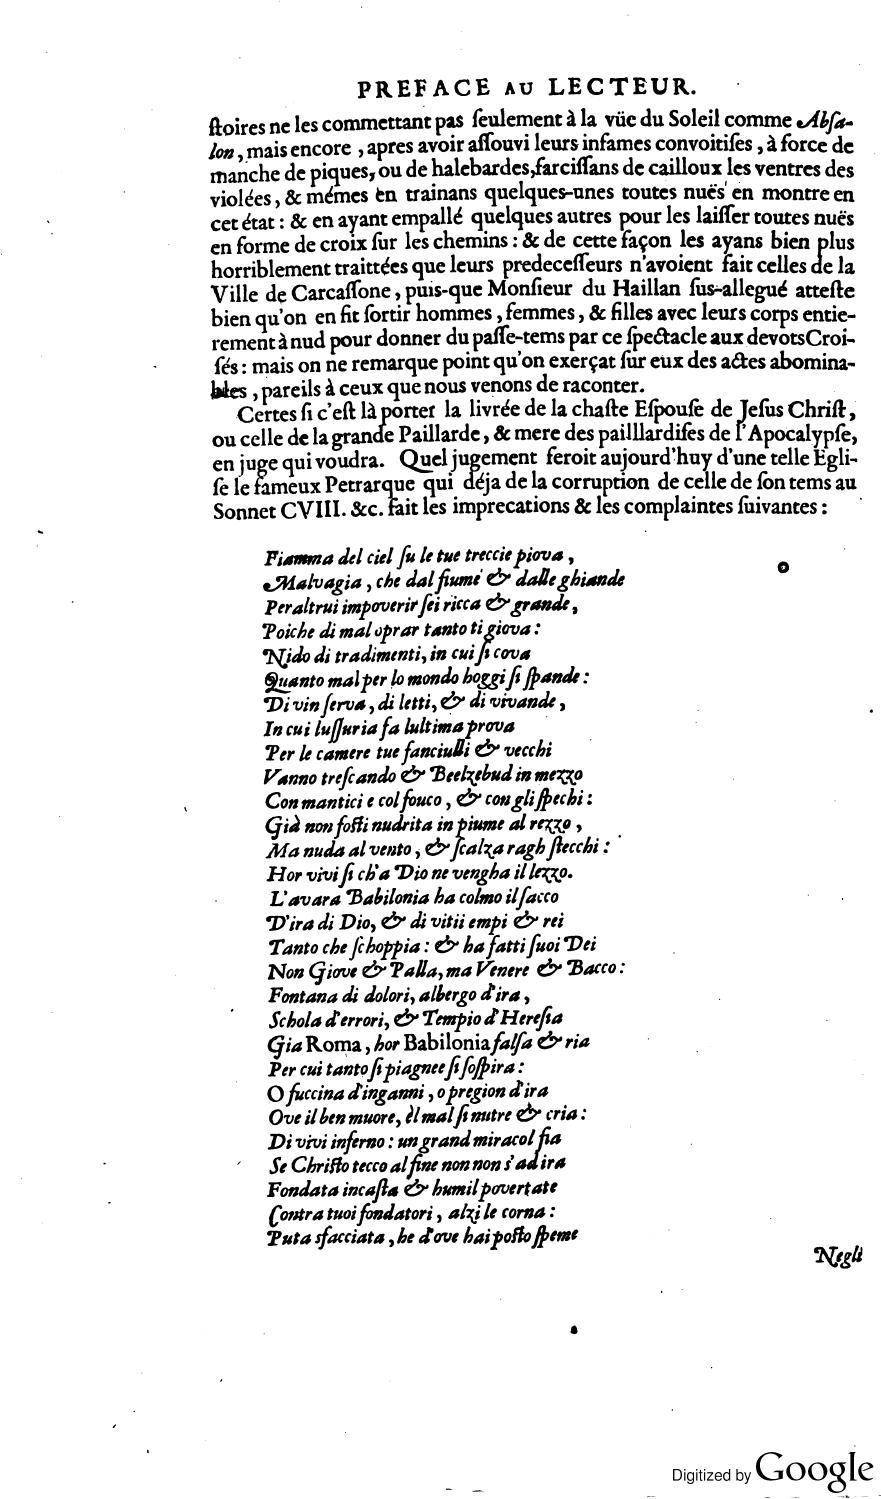 PREFACE AU LECTEUR.
ſtoires ne les commettant pas ſeulement à la vüe du Soleil comme Abſa-
lon, mais encore, apres avoir aſſouvi leurs infames convoitiſes, à force de
manche de piques, ou de halebardes, farciſſans de cailloux les ventres des
violées, & mémes en trainans quelques-unes toutes nuës en montre en
cet état: & en ayant empallé quelques autres pour les laiſſer toutes nuës
en forme de croix ſur les chemins: & de cette façon les ayans bien plus
horriblement traittées que leurs predeceſſeurs n'avoient fait celles de la
Ville de Carcaſſone, puis-que Monſieur du Haillan ſus-allegué atteſte
bien qu'on en fit ſortir hommes, femmes, & filles avec leurs corps entie-
rement à nud pour donner du paſſe-tems par ce ſpectacle aux devots Croi-
ſés: mais on ne remarque point qu'on exerçat ſur eux des actes abomina-
bles, pareils à ceux que nous venons de raconter.
Certes ſi c'eſt là porter la livrée de la chaſte Eſpouſe de Jeſus Chriſt,
ou celle de la grande Paillarde, & mere des pailllardiſes de l'Apocalypſe,
en juge qui voudra. Quel jugement feroit aujourd'huy d'une telle Egli-
ſe le fameux Petrarque qui déja de la corruption de celle de ſon tems au
Sonnet CVIII. &c. fait les imprecations & les complaintes ſuivantes:
Fiamma del ciel ſu le tue treccie piova,
Malvagia, che dal fiume & dalle ghiande
Per altrui impoverir ſei ricca & grande,
Poiche di mal oprar tanto ti giova:
Nido di tradimenti, in cui ſi cova
Quanto mal per lo mondo hoggi ſi ſpande:
Di vin ſerva, di letti, & di vivande,
In cui luſſuria fa lultima prova
Per le camere tue fanciulli & vecchi
Vanno treſcando & Beelzebud in mezzo
Con mantici e col fouco, & con gli ſpechi:
Già non foſti nudrita in piume al rezzo,
Ma nuda al vento, & ſcalza ragh ſtecchi:
Hor vivi ſi ch'a Dio ne vengha il lezzo.
L'avara Babilonia ha colmo il ſacco
D'ira di Dio, & di vitii empi & rei
Tanto che ſchoppia: & ha fatti ſuoi Dei
Non Giove & Palla, ma Venere & Bacco:
Fontana di dolori, albergo d'ira,
Schola d'errori, & Tempio d'Hereſia
Gia Roma, hor Babilonia falſa & ria
Per cui tanto ſi piagne e ſi ſoſpira:
O fuccina d'inganni, o pregion d'ira
Ove il ben muore, èl mal ſi nutre & cria:
Di vivi inferno: un grand miracol fia
Se Chriſto tecco al fine non non s'adira
Fondata in caſta & humil povertate
Contra tuoi fondatori, alzi le corna:
Puta sfacciata, he d'ove hai poſto ſpeme
Negli
Digitized by Google